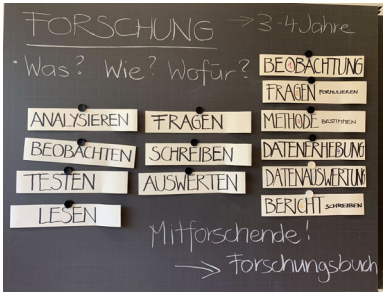 FORSCHUNG → 3-4 Jahre
• Was? Wie? Wofür?
ANALYSIEREN
BEOBACHTEN
TESTEN
LESEN
FRAGEN
SCHREIBEN
AUSWERTEN
BEOBACHTUNG
FRAGEN FORMULIEREN
METHODE BESTIMMEN
DATENERHEBUNG
DATENAUSWERTUNG
BERICHT SCHREIBEN
Mitforschende!
→ Forschungsbuch